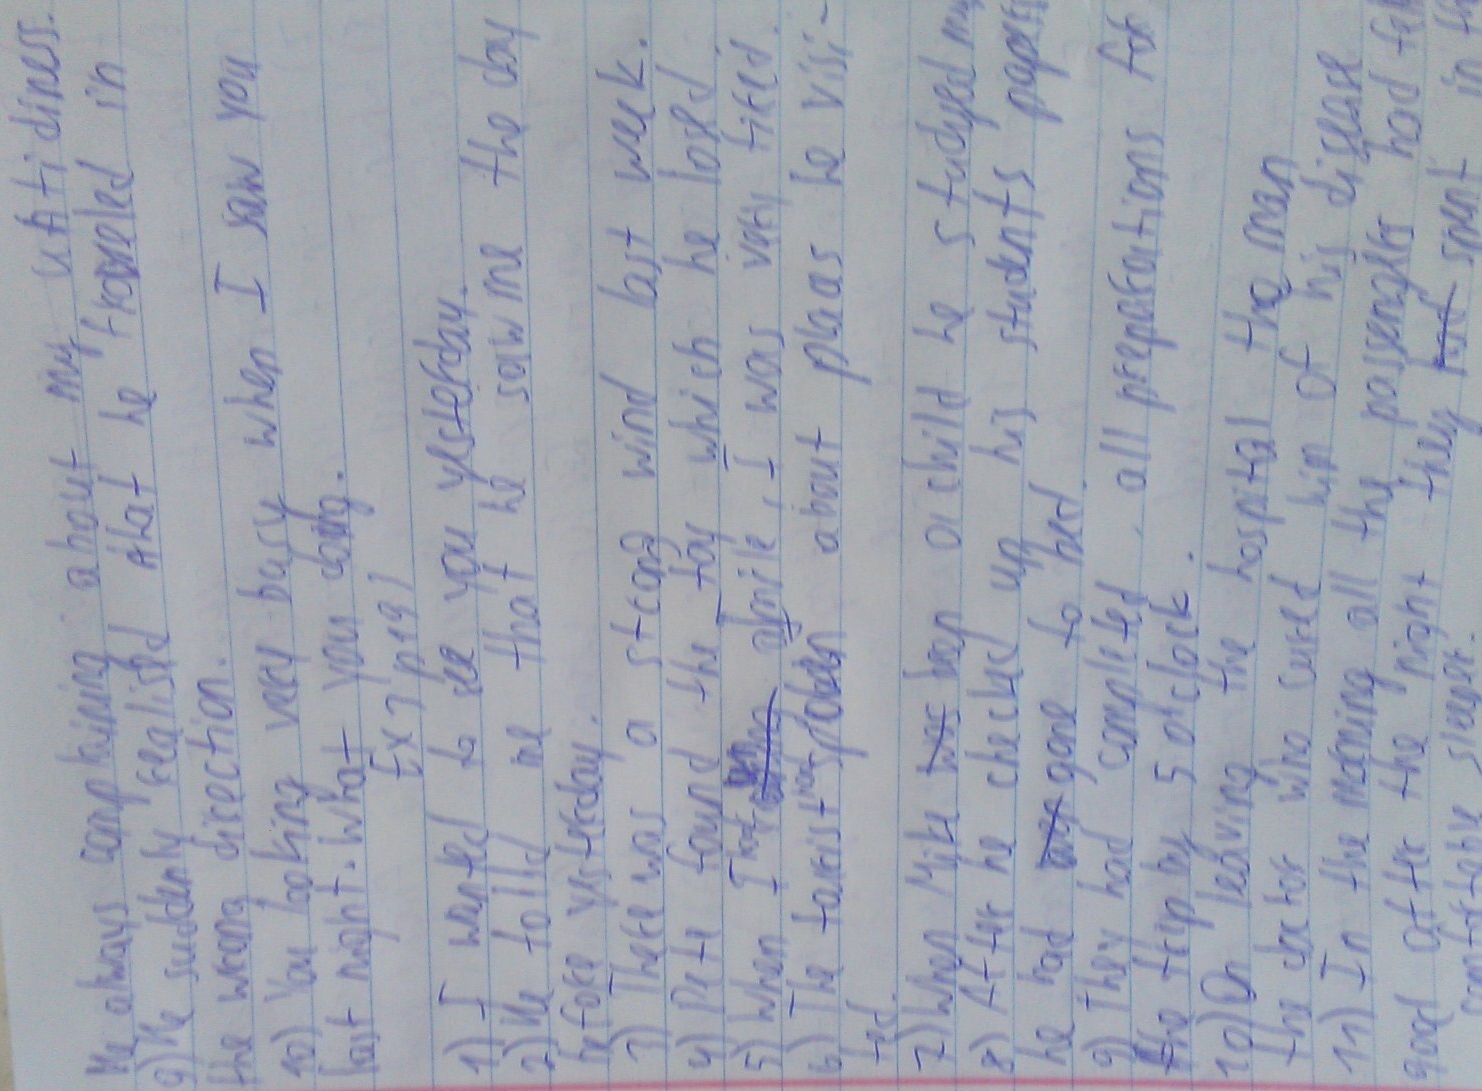 He always complaining about my untidiness.
9) He suddenly realised that he traveled in
the wrong direction.
10) You looking very busy when I saw you
last night. What you doing.
Ex 7 p 191
1) I wanted to see you yesterday.
2) He tolld me that he saw me the day
before yesterday.
3) There was a strong wind last week.
4) Pete found the toy which he lost.
5) When I, I was very tired.
6) The tourist about plaas he visi-
ted.
7) When Mike was a child he studyed
8) After he checked up his students papers
he had gone to bed.
9) They had completed all preparations for
the trip by 5 o'clock.
10) On leaving the hospital the man
the doctor who cured him of his disease
11) In the morning all the passengers had
good after the night they had spent in
comfortable